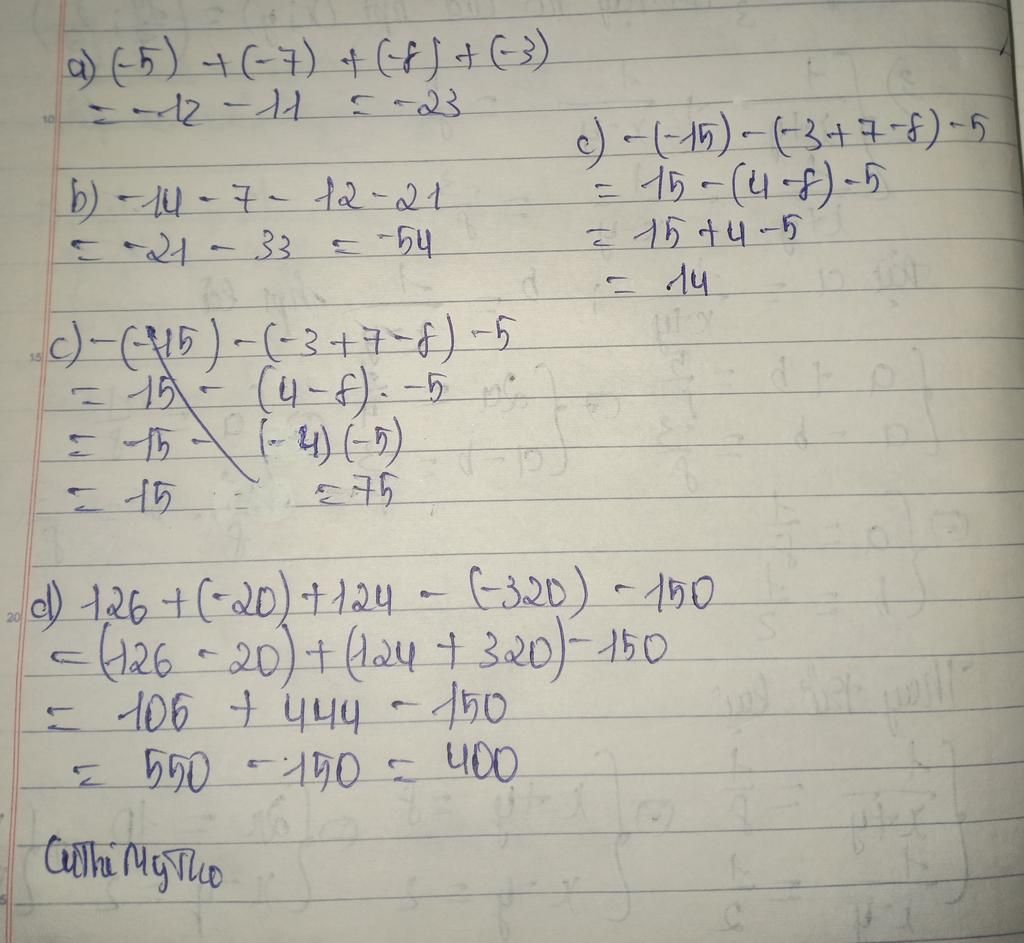 a) (-5) + (-7) + (-8) + (-3)
= -12 - 11 = -23
b) -14 - 7 - 12 - 21
= -21 - 33 = -54
c) -(-15) - (-3+7-8) -5
= 15 - (4-8) -5
= 15 +4 -5
= 14
c) -(-15) - (-3+7-8) -5
= 15 - (4-8). -5
= 15 - (-4)(-5)
= 15 = 75
d) 126 + (-20) + 124 - (-320) - 150
= (126 - 20) + (124 + 320) - 150
= 106 + 444 - 150
= 550 - 150 = 400